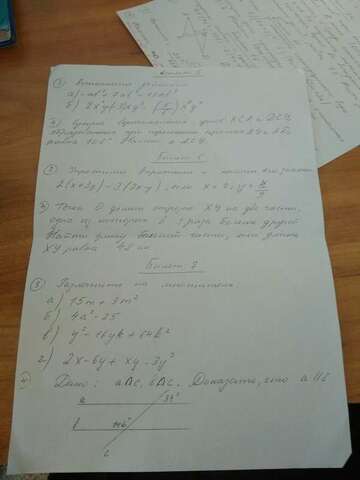 Билет 5
① Выполните действия
а) -ab² + 7ab² -
б) 2x²y + 3xy²
② Сумма вертикальных углов XCA и DCY,
образованных при пересечении прямых XY и AD,
равна Найти ∠ ACY
Билет 6
① Упростите выражение и найти его значение
2(x+3y) - 3(2x-y), при x = 2, y =
② Точка O делит отрезок XY на две части,
одна из которых в раза больше другой
Найти длину большей части, если длина
XY равна 48 см
Билет 7
③ Разложить на множители:
а) 15m + 3m²
б) 4a² - 25
в) y² - 16yk + 64k²
г) 2x - 6y + xy - 3y²
④ Дано: a∩c, b∩c. Доказать, что a || b
a 34°
b 146°
c